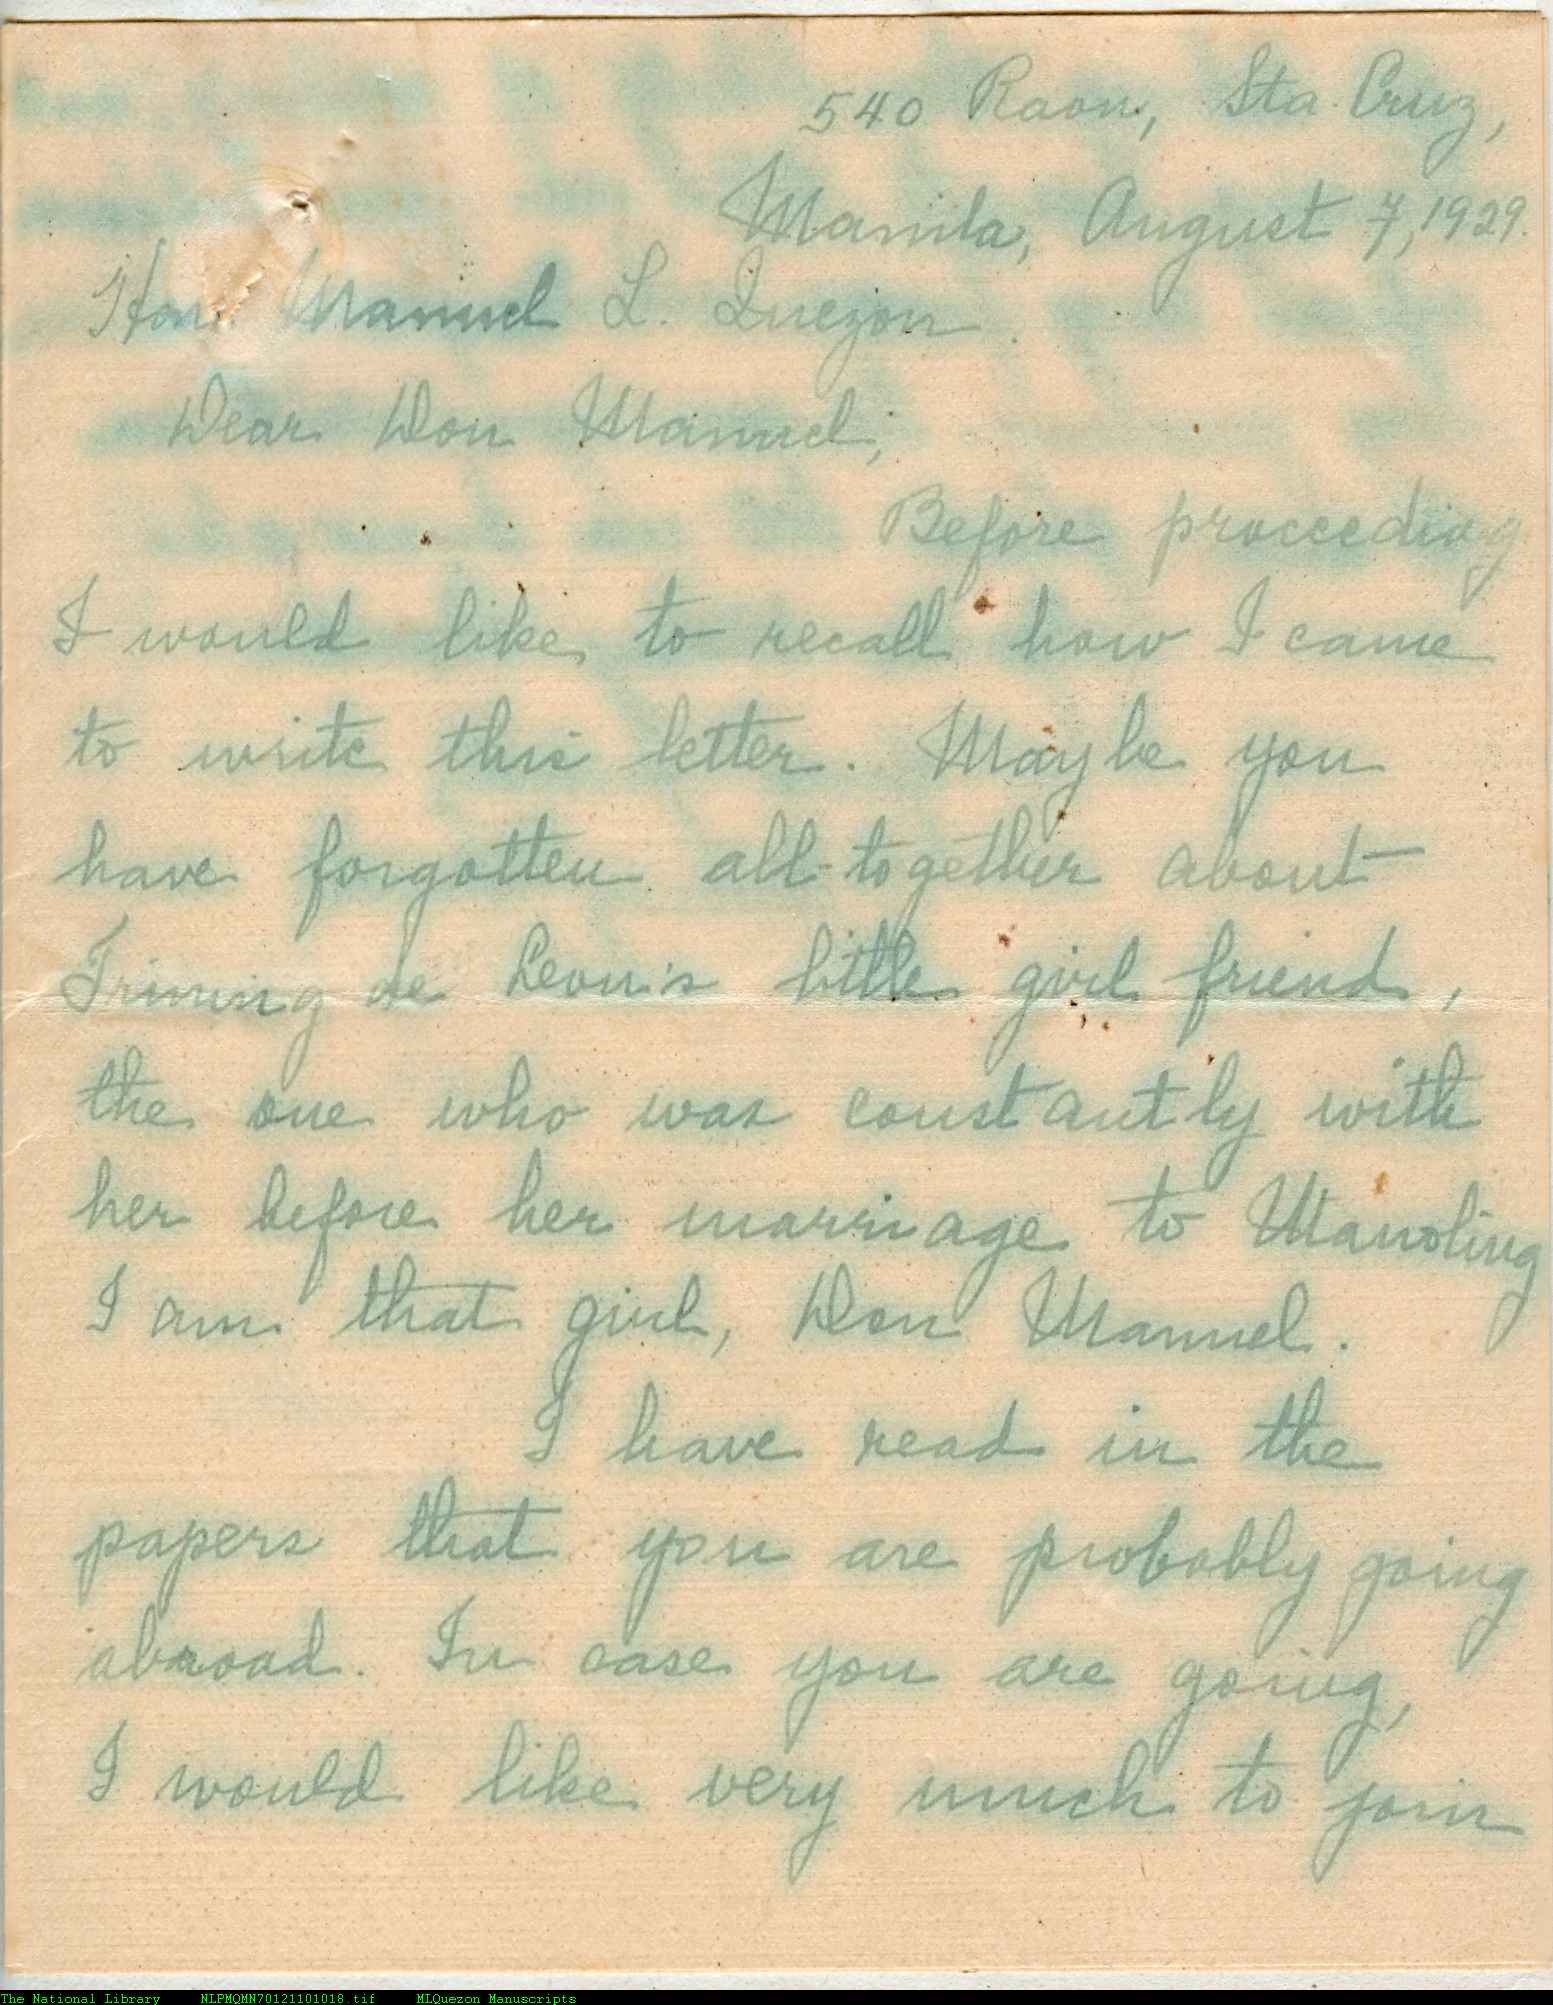 540 Raon, Sta. Cruz,
Manila, August 7, 1929.
Hon. Manuel L. Quezon
Dear Don Manuel;
Before proceeding
I would like to recall how I came
to write this letter. Maybe you
have forgotten all-together about
Trining de Leon's little girl friend,
the one who was constantly with
her before her marriage to Manoling
I am that girl, Don Manuel.
I have read in the
papers that you are probably going
abroad. In case you are going,
I would like very much to join
The National Library NLPMQMN70121101018.tif MLQuezon Manuscripts